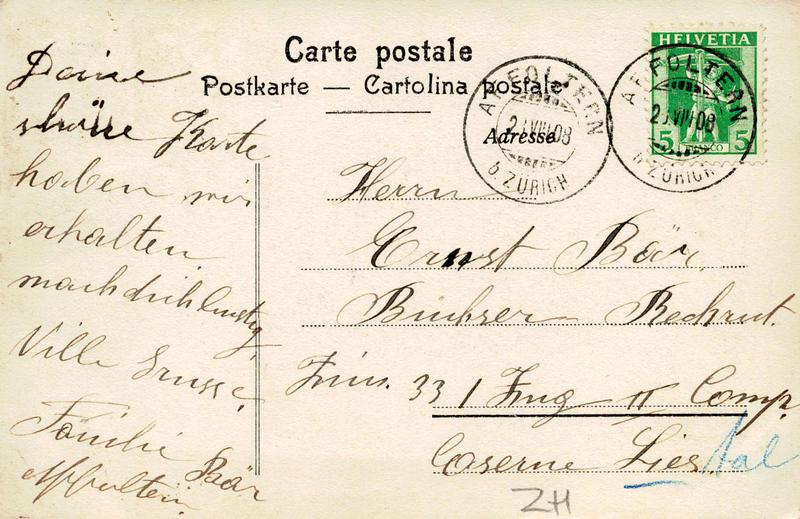 Carte postale
Postkarte — Cartolina postale
Adresse
HELVETIA
5 FRANCO 5
AFFOLTERN
b. ZÜRICH
AFFOLTERN
b. ZÜRICH
Deine
schöne Karte
haben wir
erhalten
mach dich lustig,
Ville Grüsse,
Familie Bär
Affoltern.
Herrn
Ernst Bär,
Rechrut.
33 / Zug II Comp.
Caserne Liestal
ZH